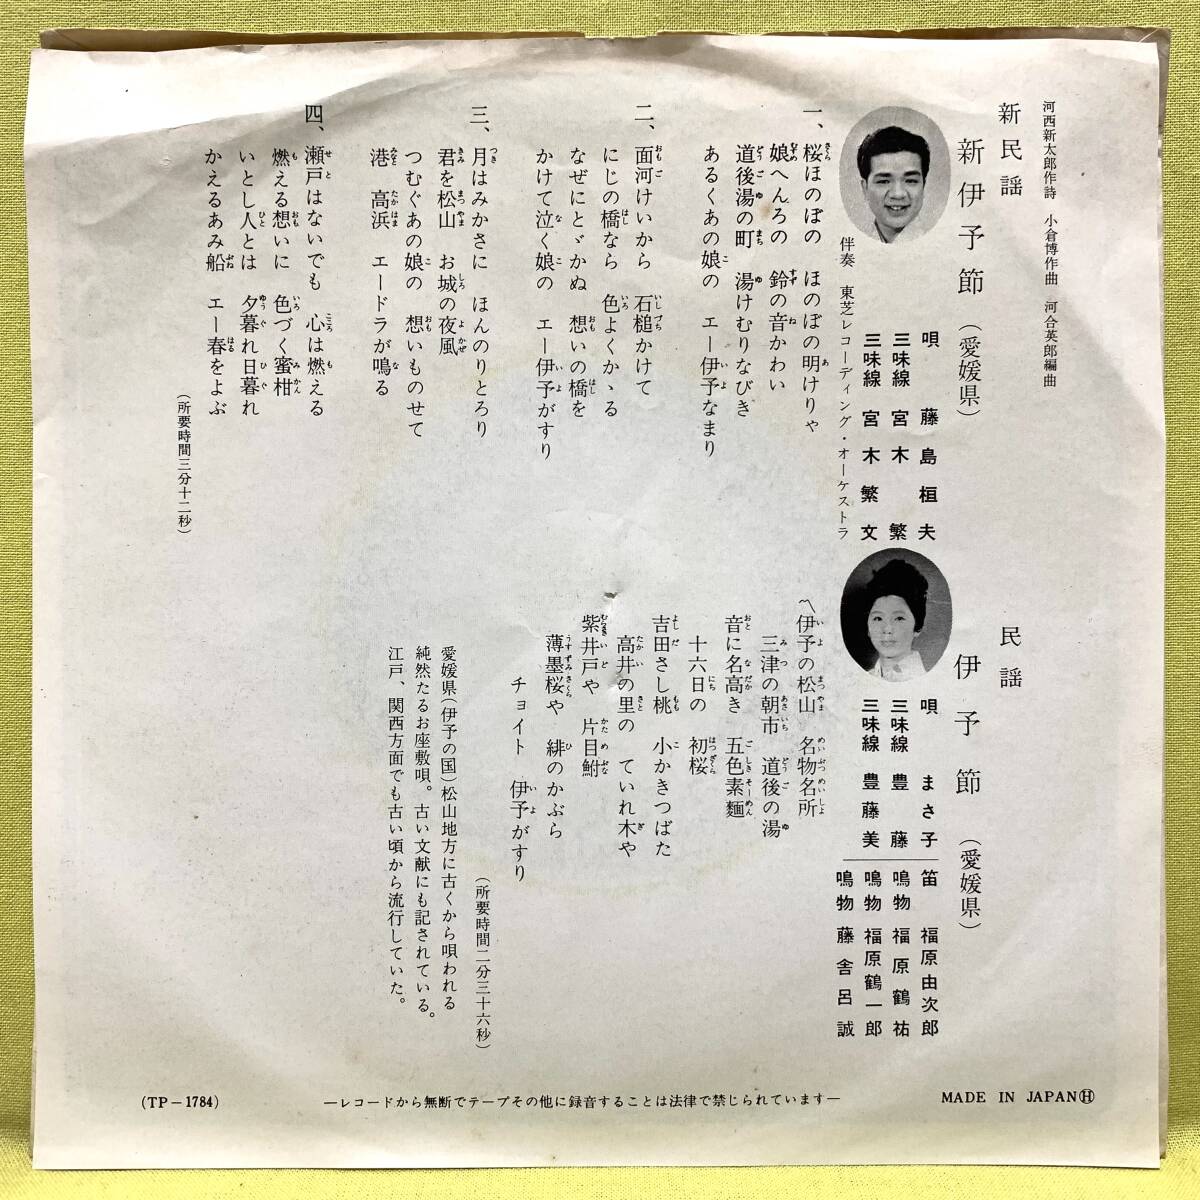 河西新太郎作詩　小倉博作曲　河合英郎編曲
新民謡
新伊予節（愛媛県）
唄　藤島桓夫
三味線　宮木繁
三味線　宮木繁文
伴奏　東芝レコーディング・オーケストラ
一、桜ほのぼの　ほのぼの明けりゃ
娘へんろの　鈴の音かわい
道後湯の町　湯けむりなびき
あるくあの娘の　エー伊予なまり
二、面河けいから　石槌かけて
にじの橋なら　色よくかゝる
なぜにとゞかぬ　想いの橋を
かけて泣く娘の　エー伊予がすり
三、月はみかさに　ほんのりとろり
君を松山　お城の夜風
つむぐあの娘の　想いものせて
港　高浜　エードラが鳴る
四、瀬戸はないでも　心は燃える
燃える想いに　色づく蜜柑
いとし人とは　夕暮れ日暮れ
かえるあみ船　エー春をよぶ
（所要時間三分十二秒）
民謡
伊予節（愛媛県）
唄　まさ子
三味線　豊藤
三味線　豊藤美
笛　福原由次郎
鳴物　福原鶴祐
鳴物　福原鶴一郎
鳴物　藤舎呂誠
〽伊予の松山　名物名所
三津の朝市　道後の湯
音に名高き　五色素麺
十六日の　初桜
吉田さし桃　小かきつばた
高井の里の　ていれ木や
紫井戸や　片目鮒
薄墨桜や　緋のかぶら
チョイト　伊予がすり
（所要時間二分三十六秒）
愛媛県（伊予の国）松山地方に古くから唄われる
純然たるお座敷唄。古い文献にも記されている。
江戸、関西方面でも古い頃から流行していた。
(TP－1784)
―レコードから無断でテープその他に録音することは法律で禁じられています―
MADE IN JAPANⒽ